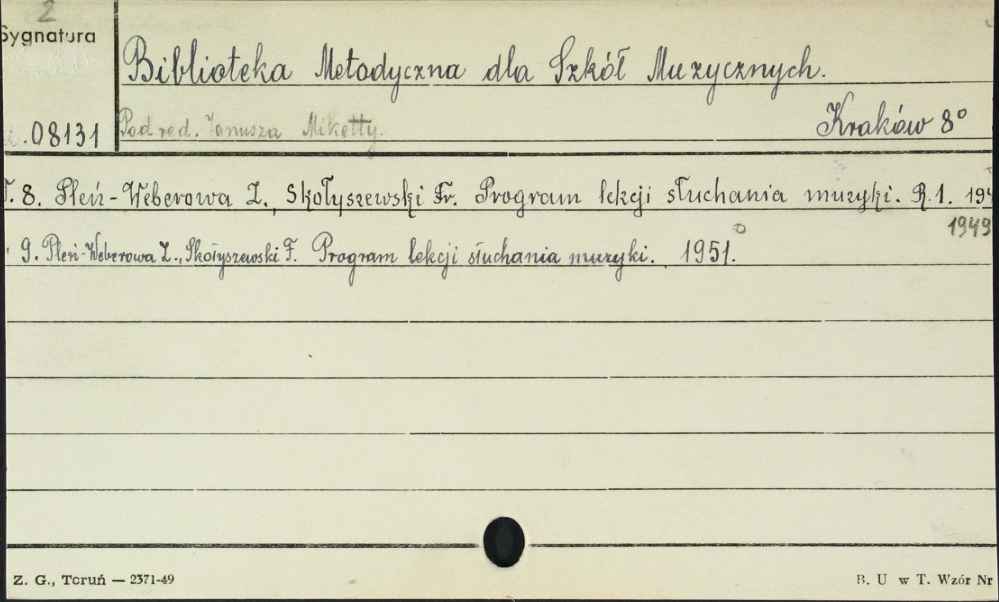 2
Sygnatura
Biblioteka Metodyczna dla Szkół Muzycznych.
.08131 Pod red. Janusza Miketty. Kraków 8°
T. 8. Pleń-Weberowa Z., Skołyszewski Fr. Program lekcji słuchania muzyki. R.1. 194
1949
9. Pleń-Weberowa Z., Skołyszewski F. Program lekcji słuchania muzyki. 1951.
Z. G., Toruń — 2371-49 B. U w T. Wzór Nr